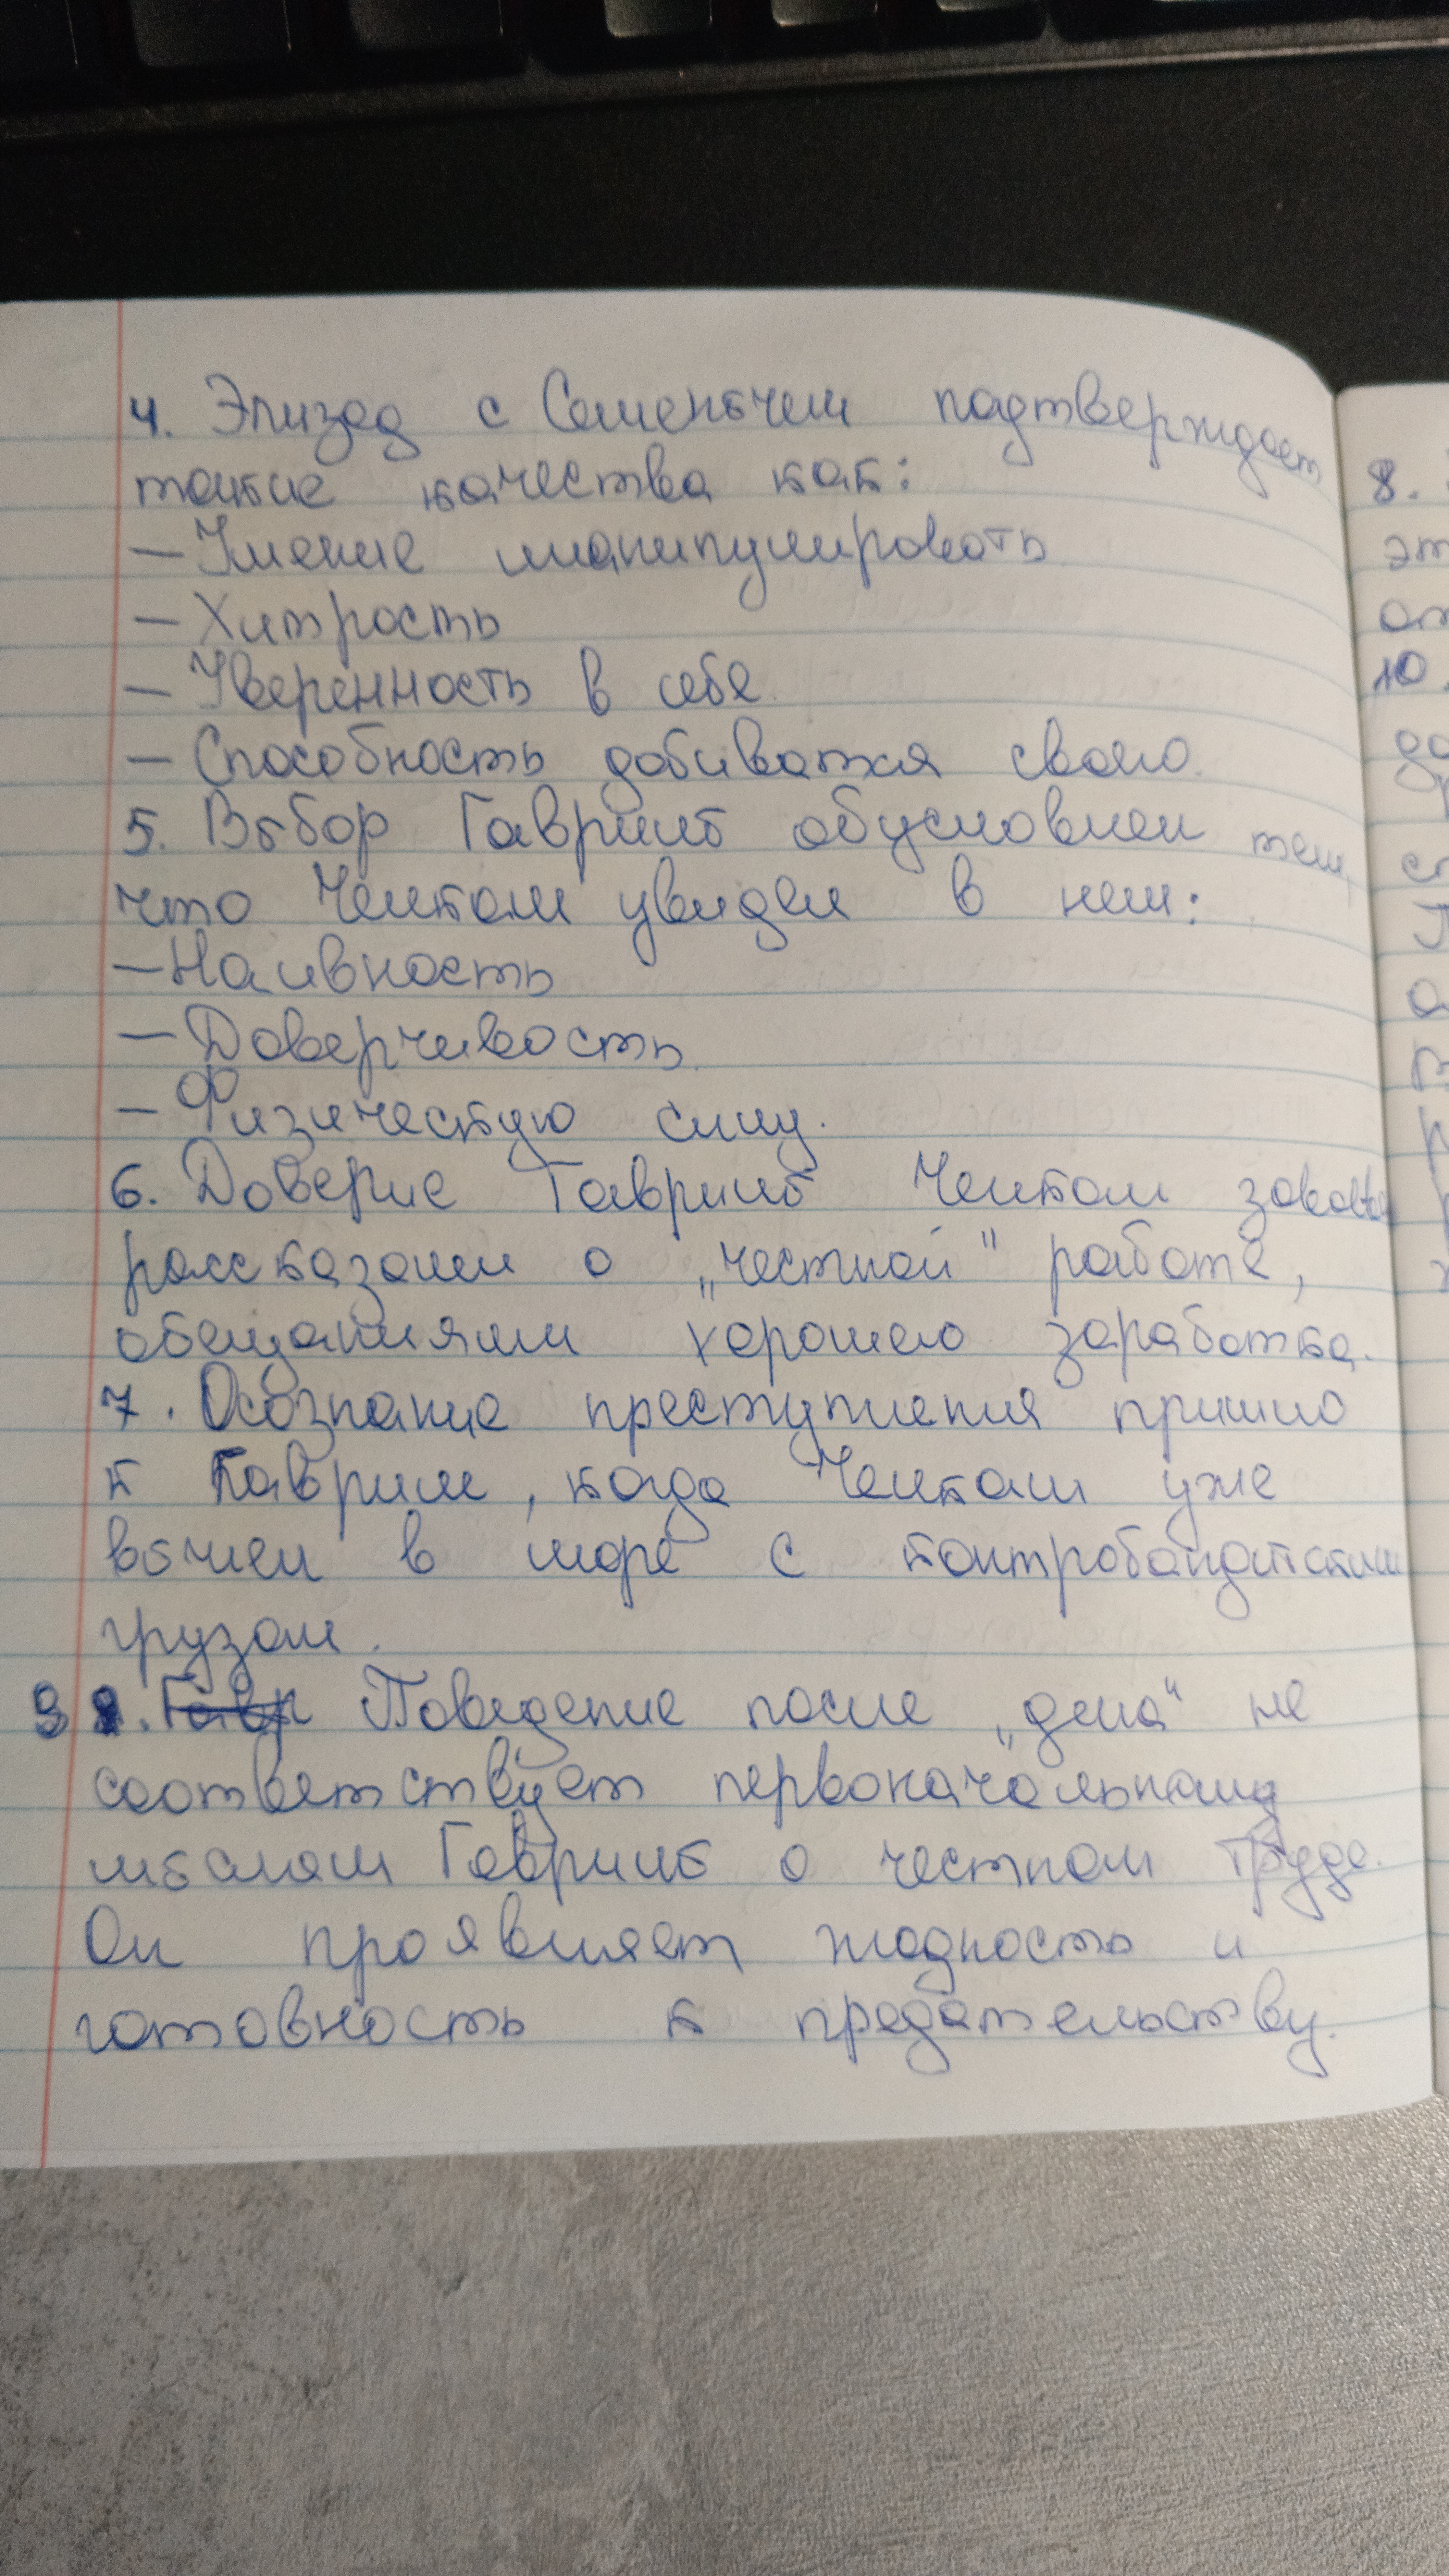 4. Эпизод с Семенычем подтверждает
такие качества как:
— Умение манипулировать
— Хитрость
— Уверенность в себе.
— Способность добиватся своего.
5. Выбор Гаврилы обусловлен тем,
что Челкаш увидел в нем:
— Наивность
— Доверчивость.
— Физическую силу.
6. Доверие Гаврилы Челкаш
рассказами о „честной" работе,
обещаниями хорошего заработка.
7. Осознание преступления пришло
к Гавриле, когда Челкаш уже
вышел в море с
грузом.
9. Гавр Поведение после „дела" не
соответствует первоначальным
мыслям Гаврилы о честном труде.
Он проявляет жадность и
готовность к предательству.
8.
эт
от
10.